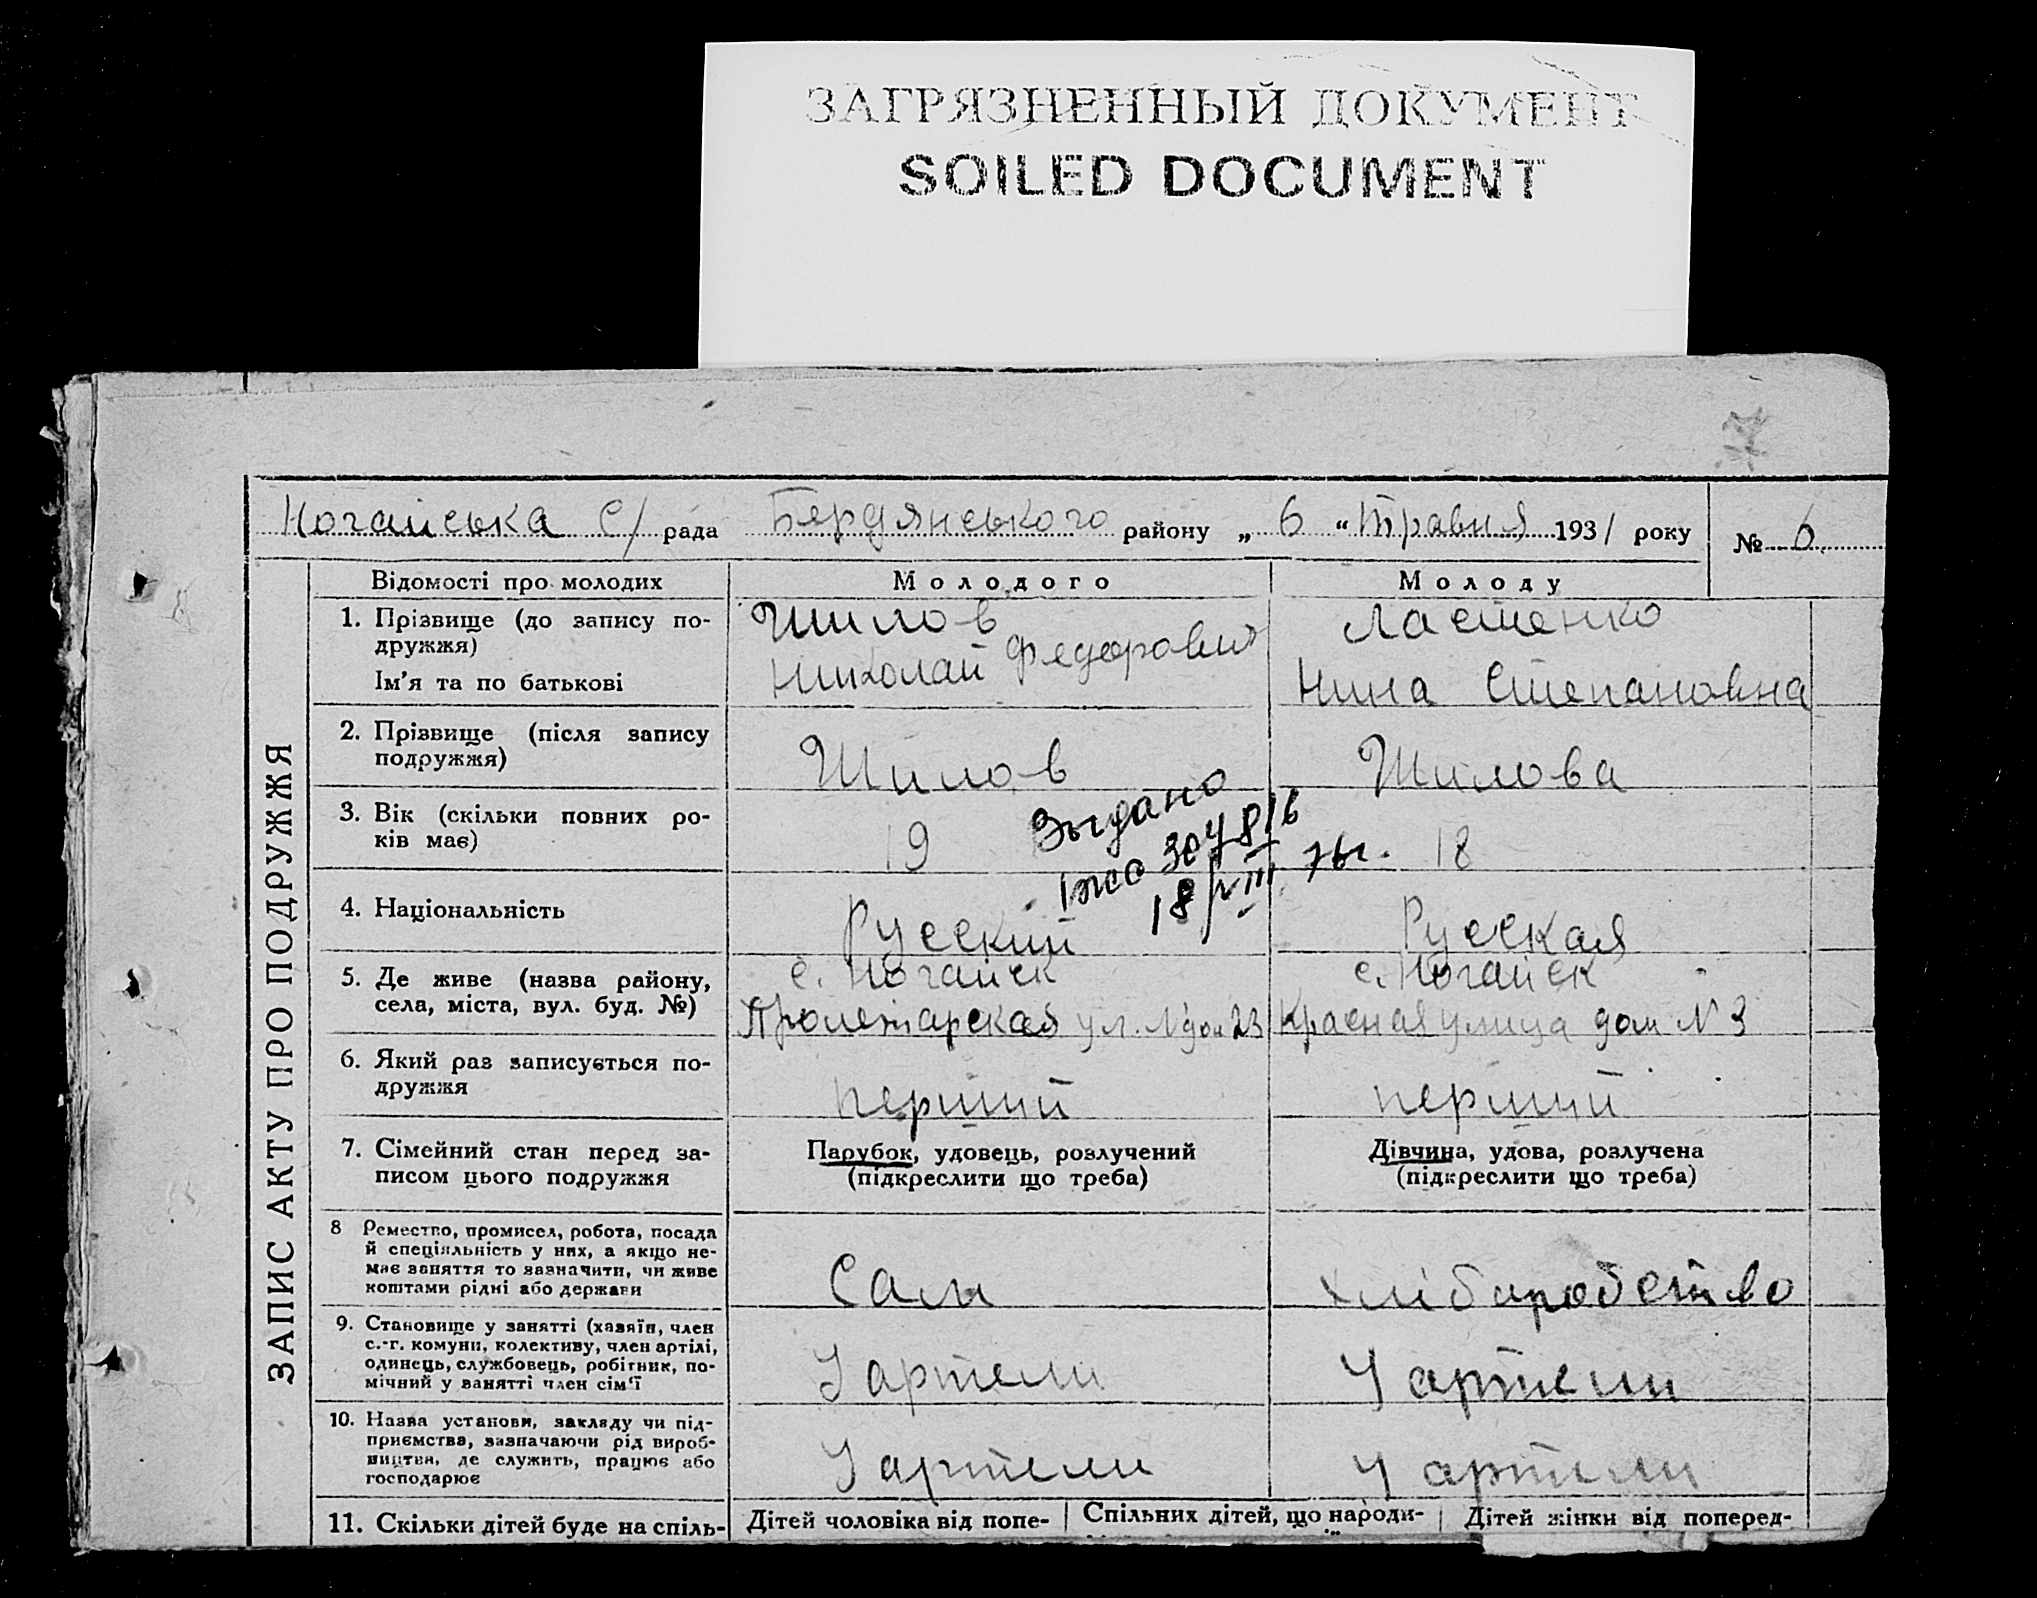 ЗАГРЯЗНЕННЫЙ ДОКУМЕНТ
SOILED DOCUMENT
Ногайська С/ рада Бердянського району „ 6 “ Травня 1931 року № 6
ЗАПИС АКТУ ПРО ПОДРУЖЖЯ
Відомості про молодих
Молодого
Молоду
1. Прізвище (до запису по-
дружжя)
Ім'я та по батькові
Шилов
Николай Федорович
Ластенко
Нина Степановна
2. Прізвище (після запису
подружжя)
Шилов
Шилова
3. Вік (скільки повних ро-
ків має)
19
18
18/VIII 76г.
4. Національність
Русский
Русская
5. Де живе (назва району,
села, міста, вул. буд. №)
с. Ногайск
Пролетарская ул. N дом 23
с. Ногайск
Красная улица дом N 3
6. Який раз записується по-
дружжя
перший
перший
7. Сімейний стан перед за-
писом цього подружжя
Парубок, удовець, розлучений
(підкреслити що треба)
Дівчина, удова, розлучена
(підкреслити що треба)
8 Ремество, промисел, робота, посада
й спеціяльність у них, а якщо не-
має заняття то зазначити, чи живе
коштами рідні або держави
Сам
Хліборобство
9. Становище у занятті (хазяїн, член
с.-г. комуни, колективу, член артілі,
одинець, службовець, робітник, по-
мічний у занятті член сім'ї
У артели
У артели
10. Назва установи, закладу чи під-
приємства, зазначаючи рід вироб-
ництва, де служить, працює або
господарює
У артели
У артели
11. Скільки дітей буде на спіль-
Дітей чоловіка від попе-
Спільних дітей, що народи-
Дітей жінки від поперед-